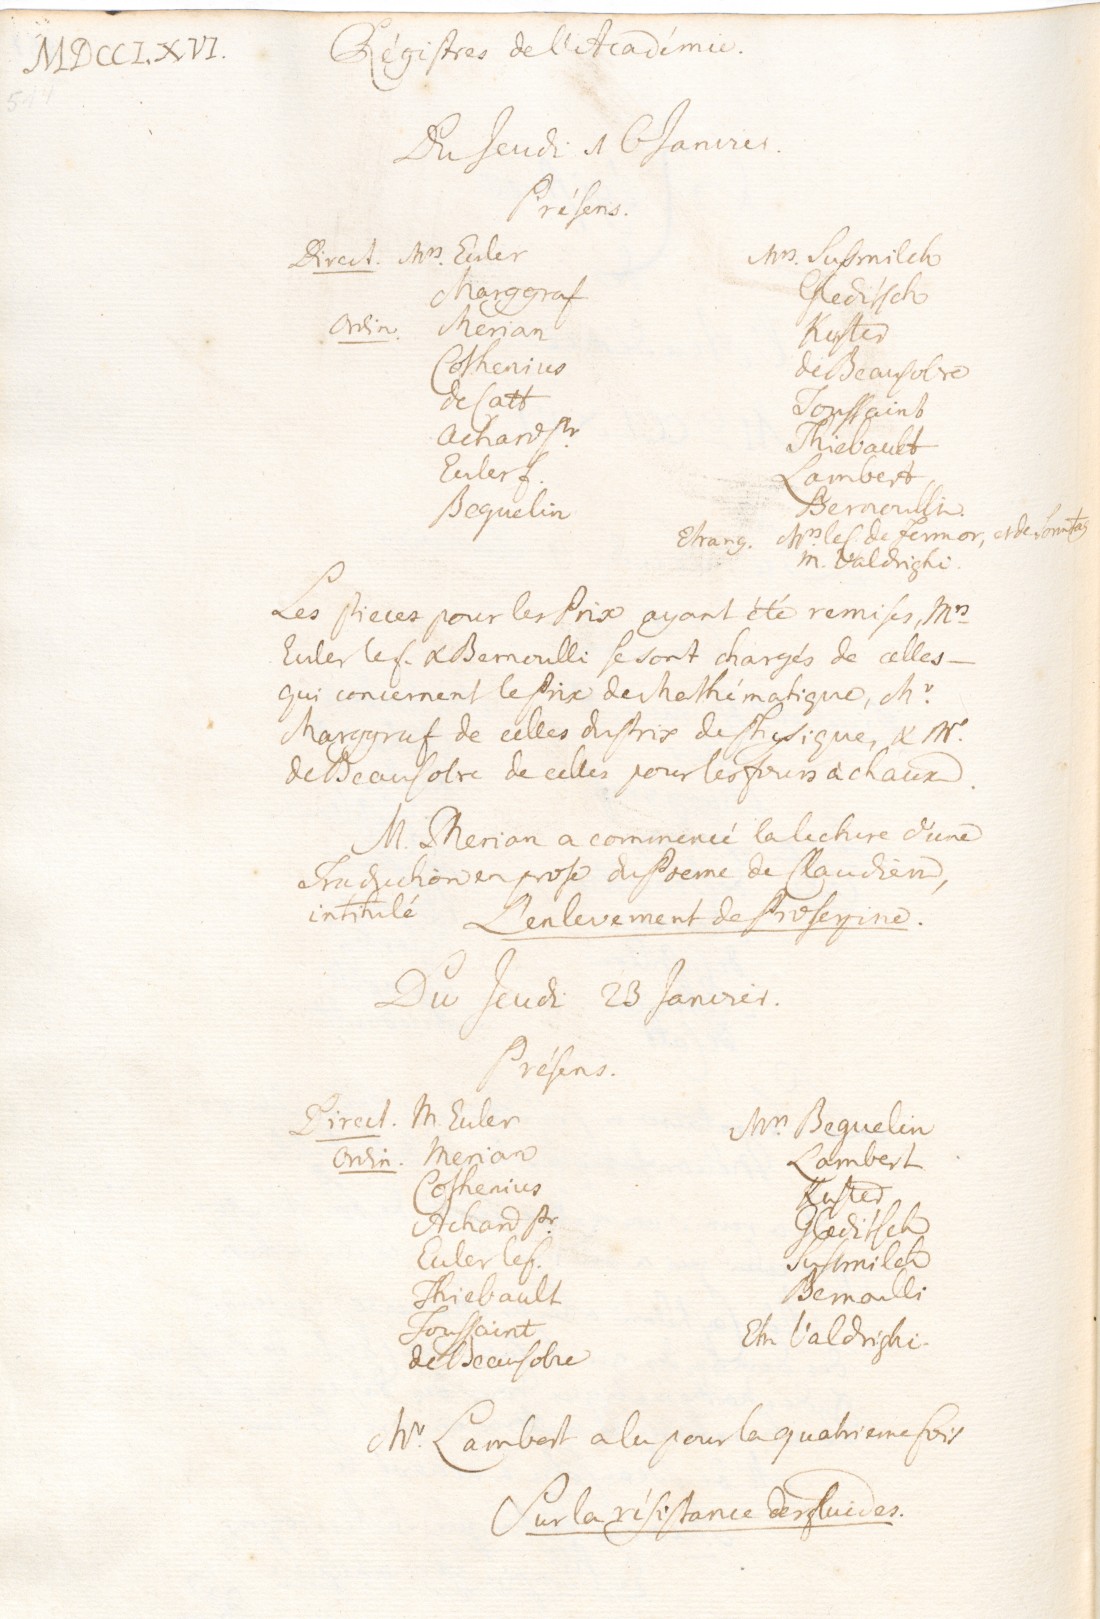 MDCCLXVI.
Régistres de l'Académie.
Du Jeudi 16 Janvier.
Présens.
Direct. Mrs. Euler
Marggraf
Ordin. Merian
Cothenius
de Catt
Achard pr
Euler f.
Beguelin
Mrs. Sussmilch
Gleditsch
Kuster
de Beausobre
Toussaint
Thiebault
Lambert
Bernoulli.
Etrang. Mrs les C. de Fermor, et de
M. Valdrighi.
Les pieces pour les Prix ayant été remises, Mrs
Euler le f. & Bernoulli se sont chargés de celles
qui concernent le Prix de Mathématique, Mr.
Marggraf de celles du Prix de Physique, & Mr.
de Beausobre de celles pour les fours à chaux.
M. Merian a commencé la lecture d'une
Traduction en prose du Poeme de Claudien,
intitulé L'enlevement de Proserpine.
Du Jeudi 23 Janvier.
Présens.
Direct. M. Euler
Ordin. Merian
Cothenius
Achard pr.
Euler le f.
Thiebault
Toussaint
de Beausobre
Mrs Beguelin
Lambert
Kuster
Gleditsch
Sussmilch
Bernoulli
Etr. Valdrighi.
Mr. Lambert a lu pour la quatrieme fois
Sur la résistance des fluides.